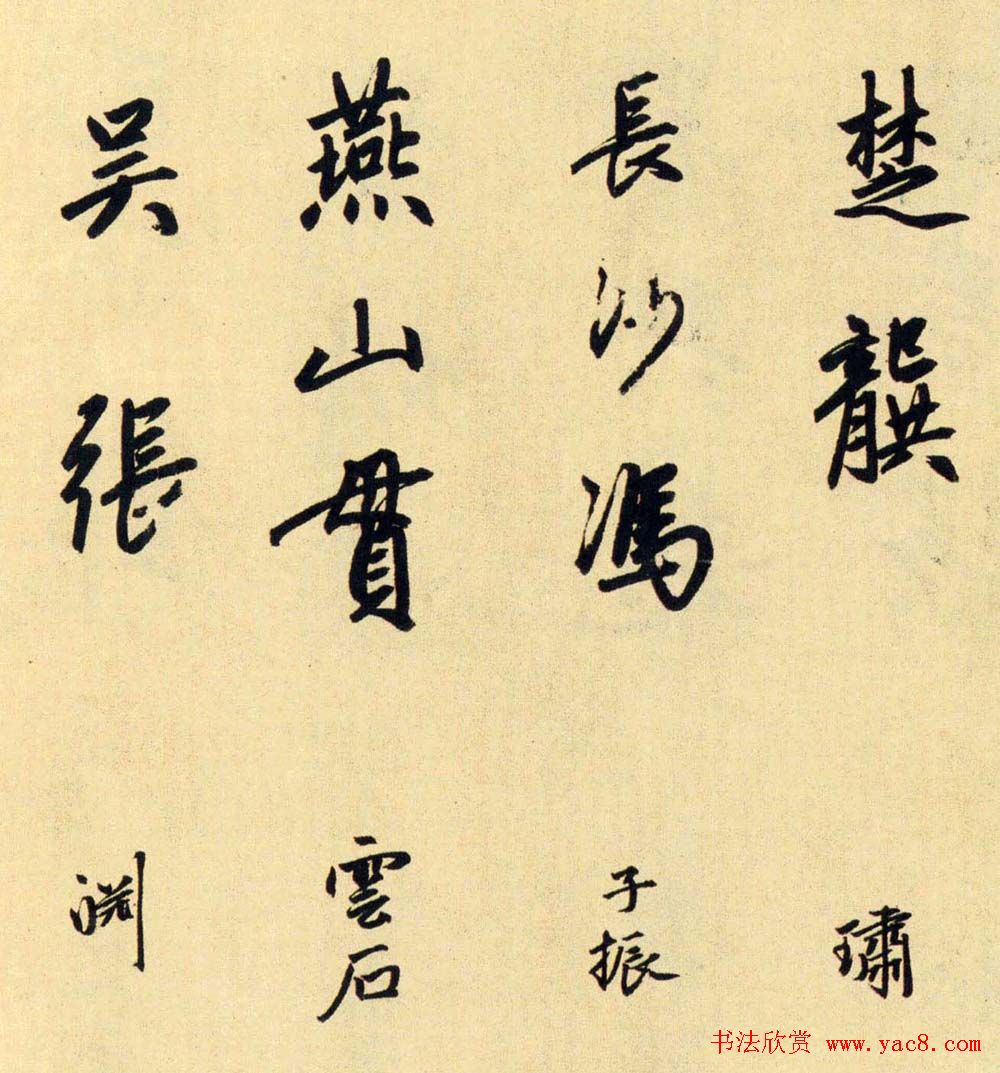 楚龔 璛
長沙馮 子振
燕山貫 雲石
吴張 渊
书法欣赏 www.yac8.com